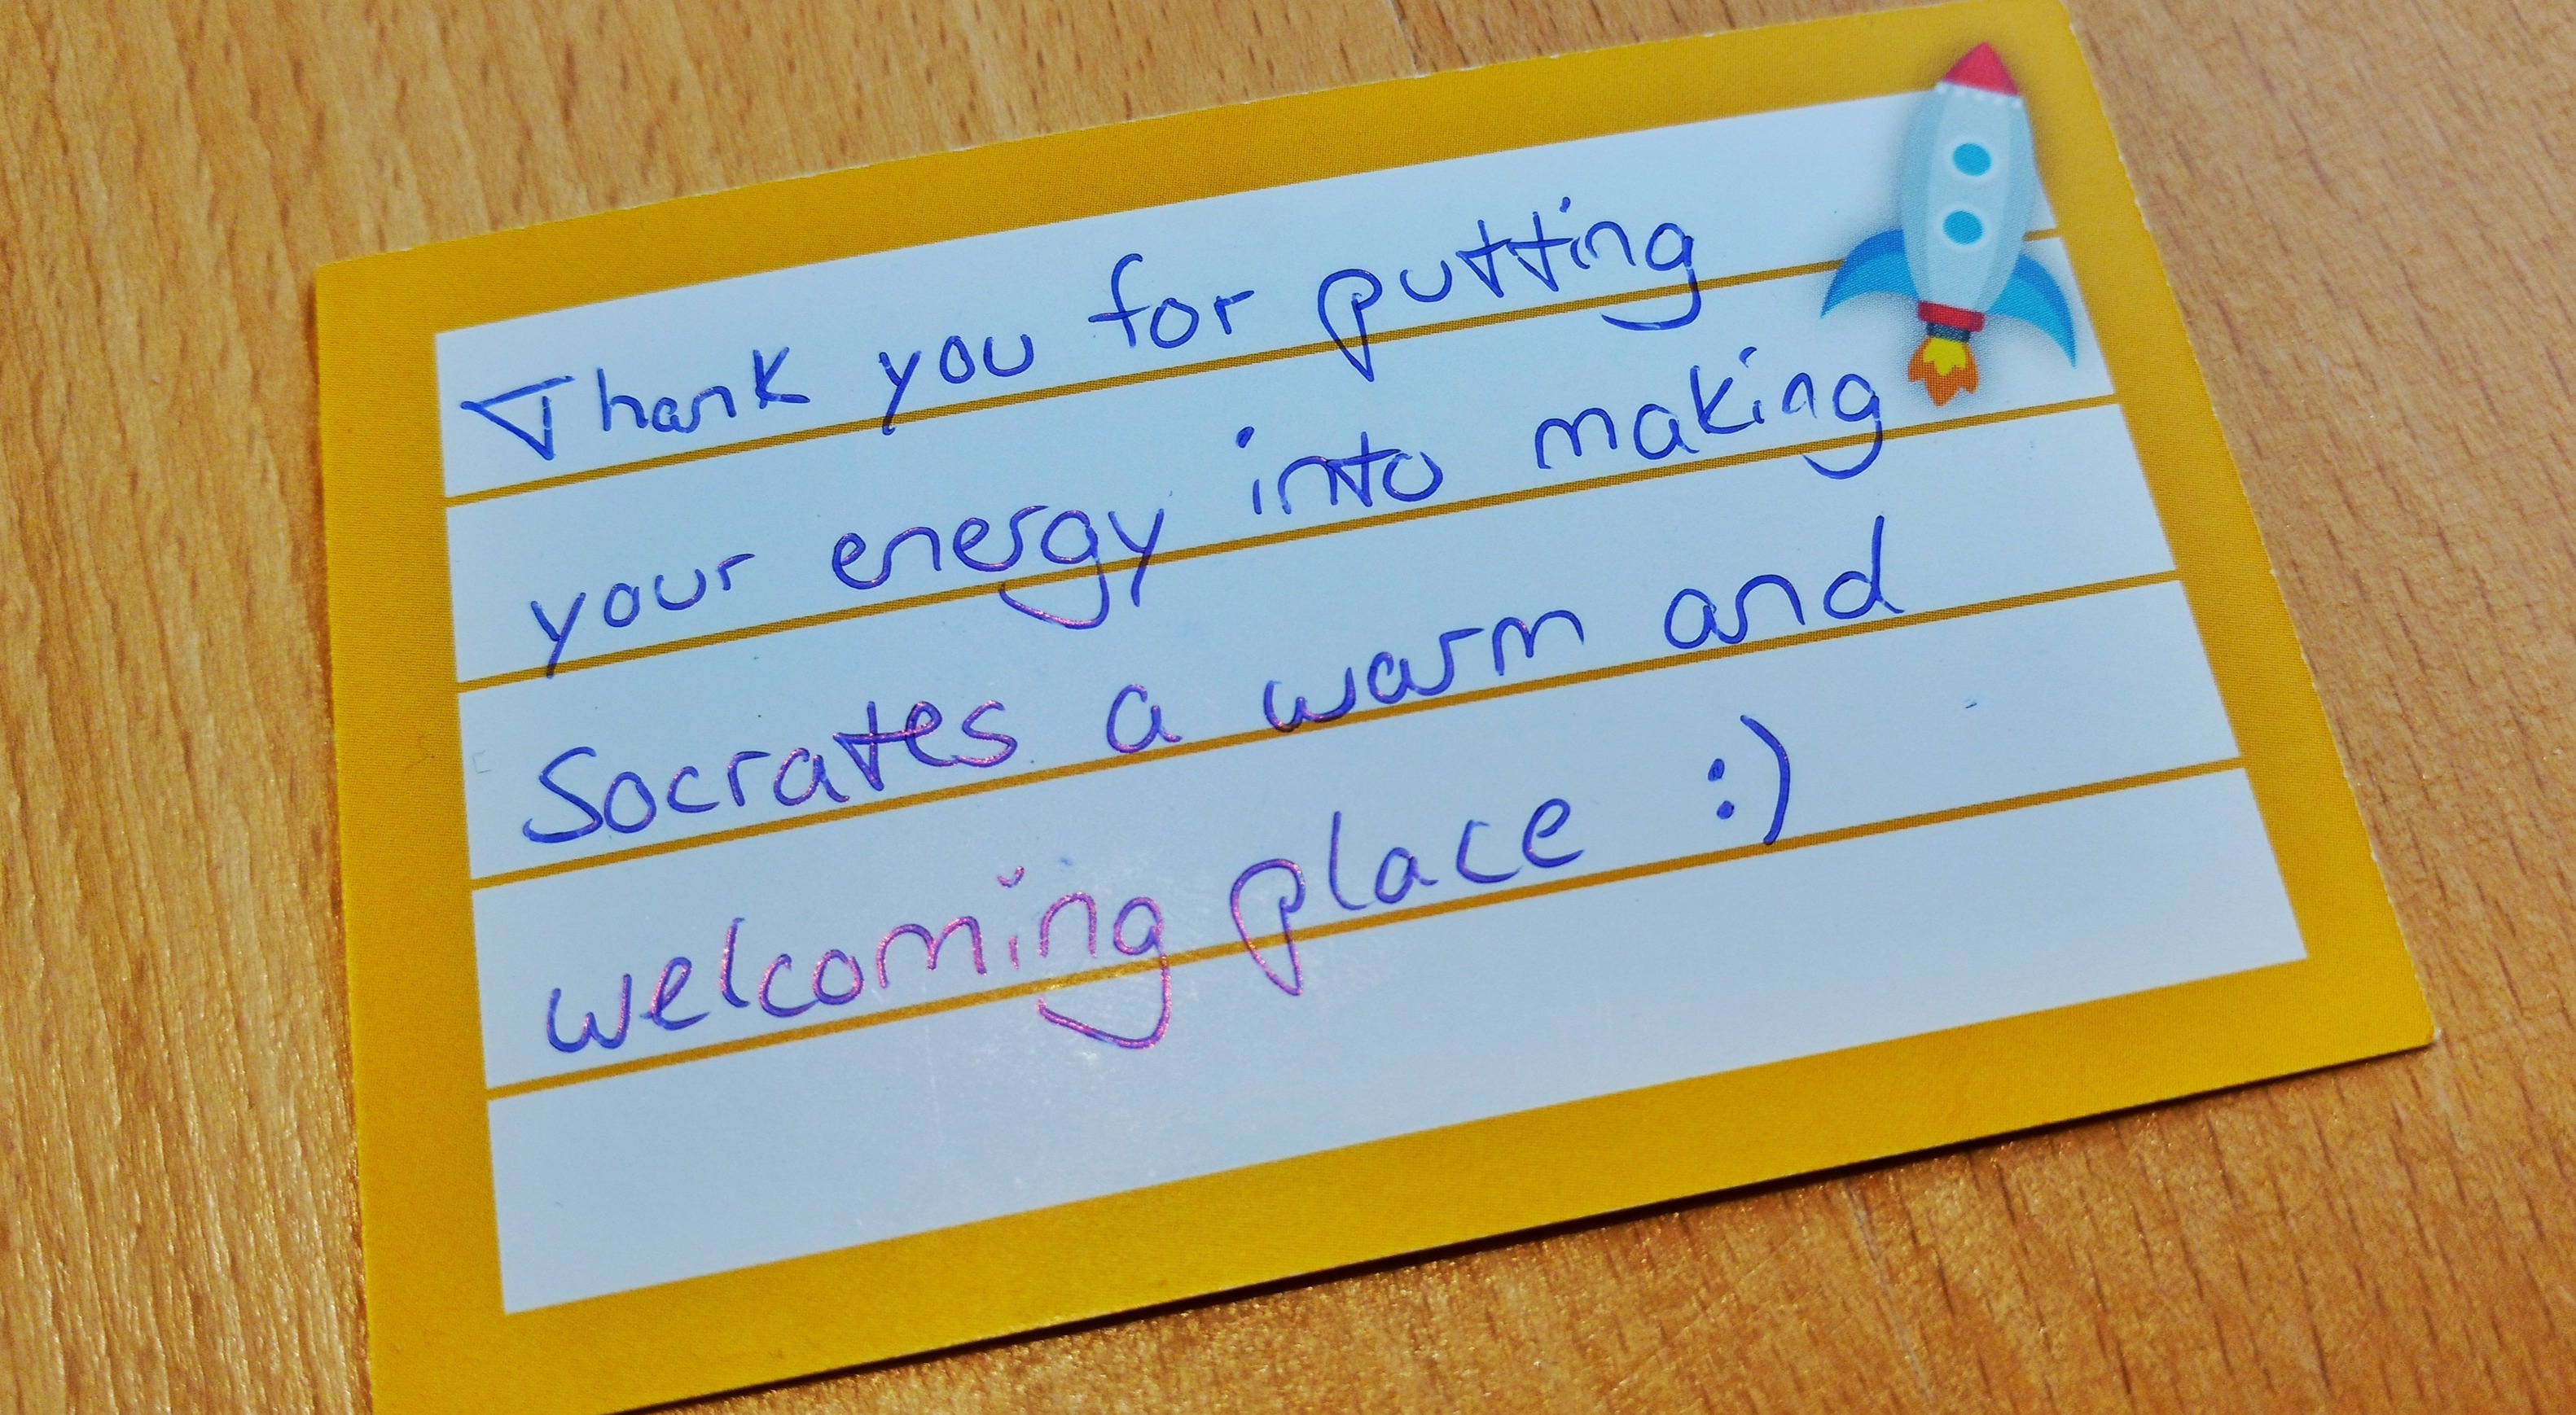 Thank you for putting
your energy into making
Socrates a warm and
welcoming place :)